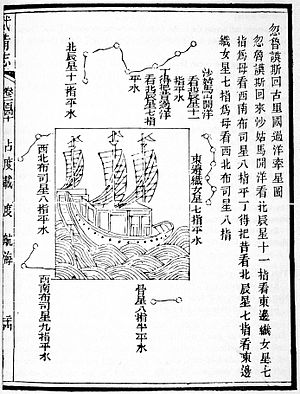 忽魯謨斯回古里國過洋牽星圖
忽魯謨斯回來沙姑馬開洋看北辰星十一指看東邊織女星七
指爲母看西南布司星八指平丁得把昔看北辰星七指看東邊
織女星七指爲母看西北布司星八指
沙姑馬開洋
看北辰星十一
指平水
丁得把昔過洋
看北辰星七指
平水
北辰星十一指平水
東邊織女星七指平水
西北布司星八指平水
骨星八指半平水
西南布司星九指平水
武備志 卷二百四十 占度載 度 航海